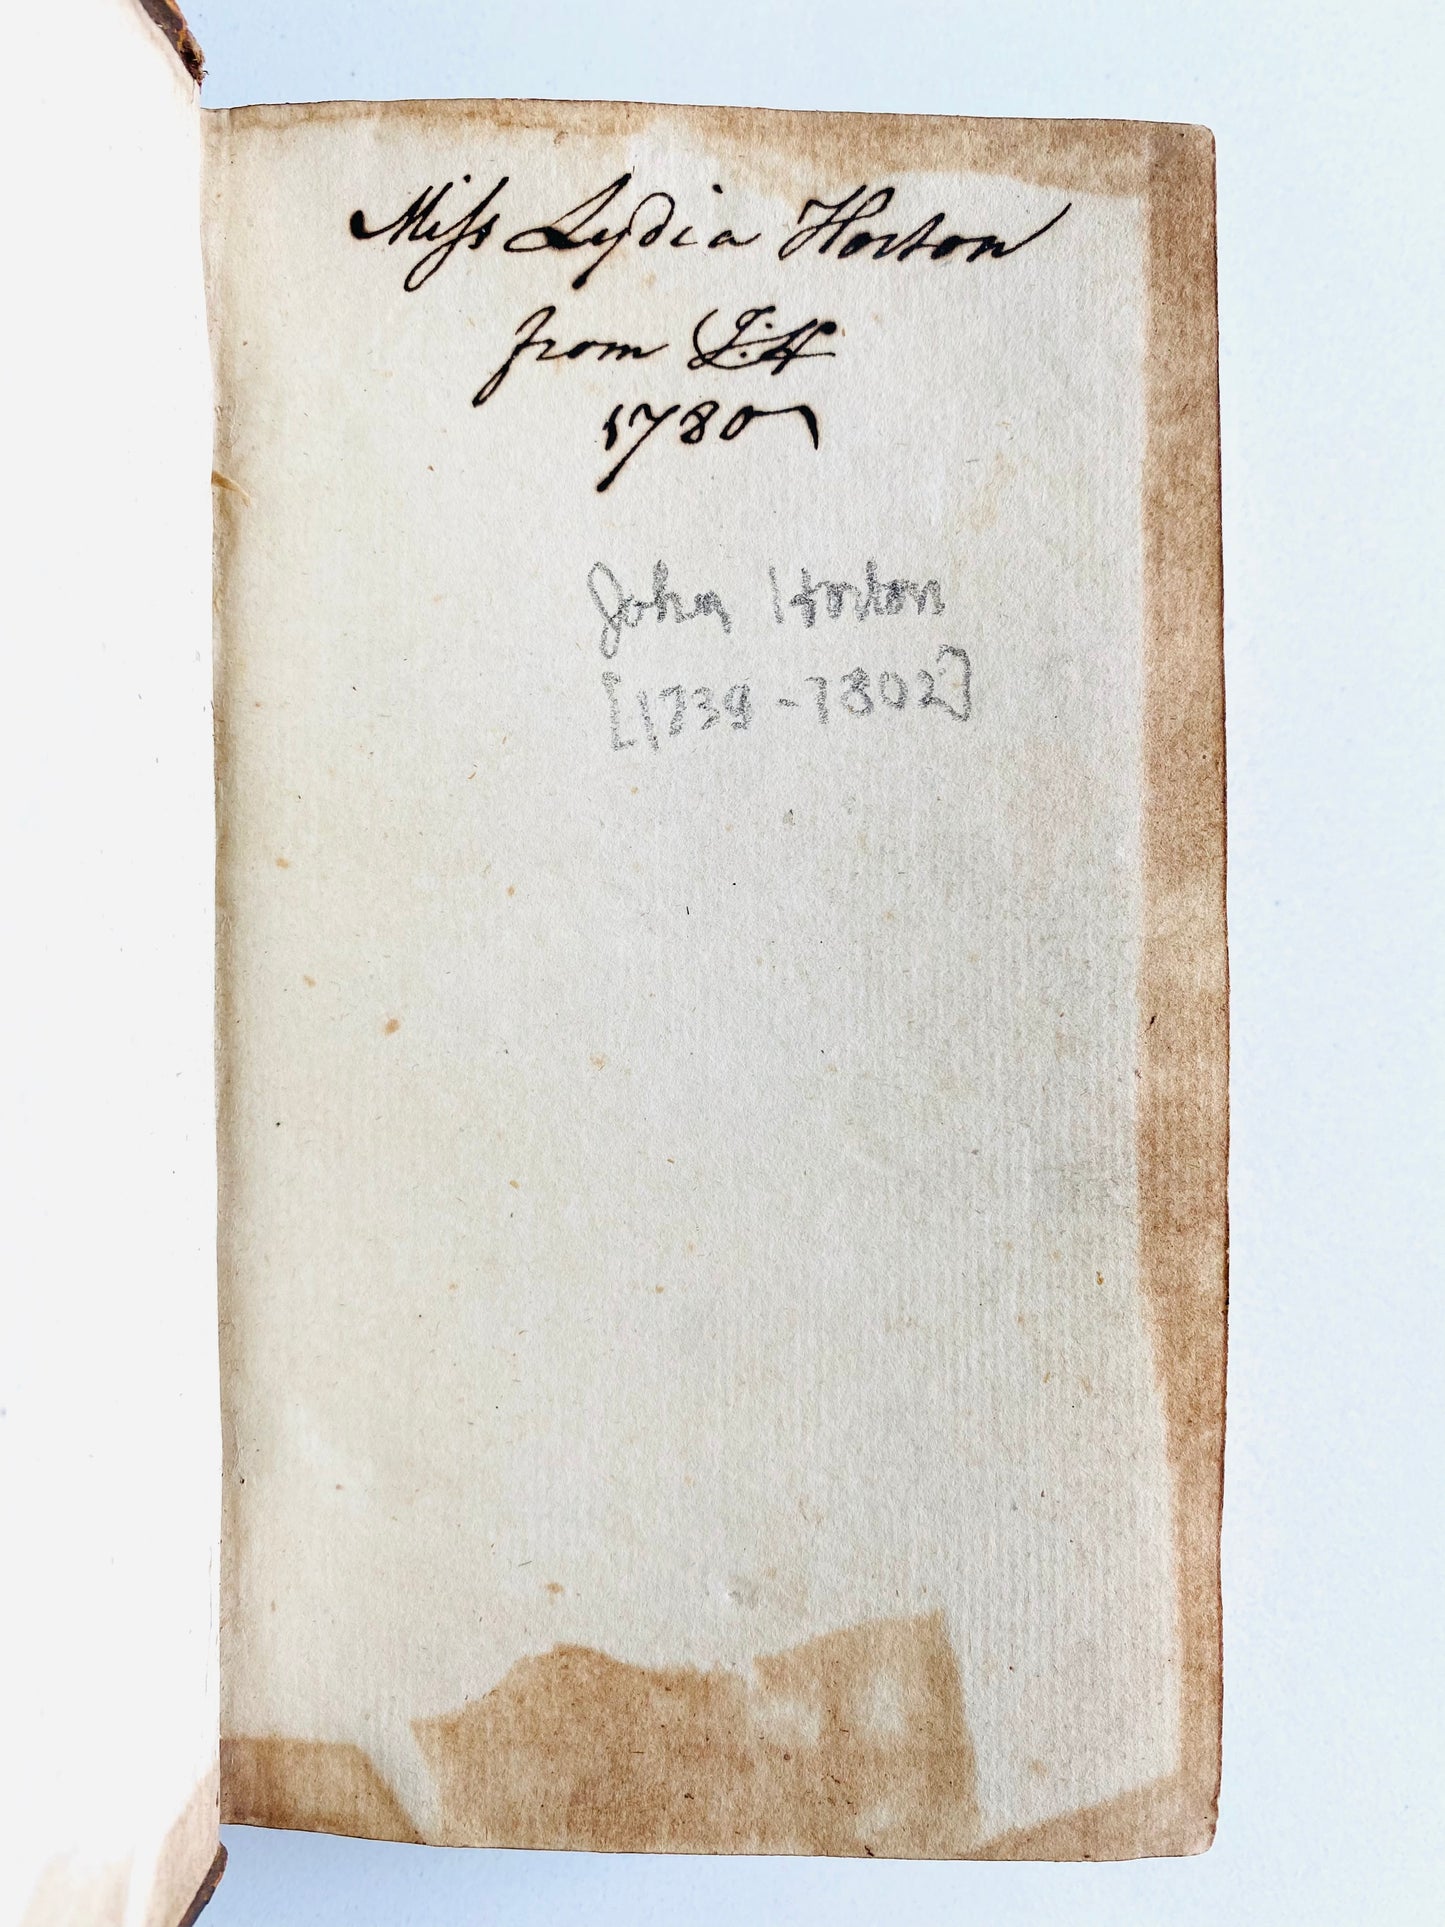 Miſs Lydia Horton
from J:H
1780
John Horton
[1739-1802]